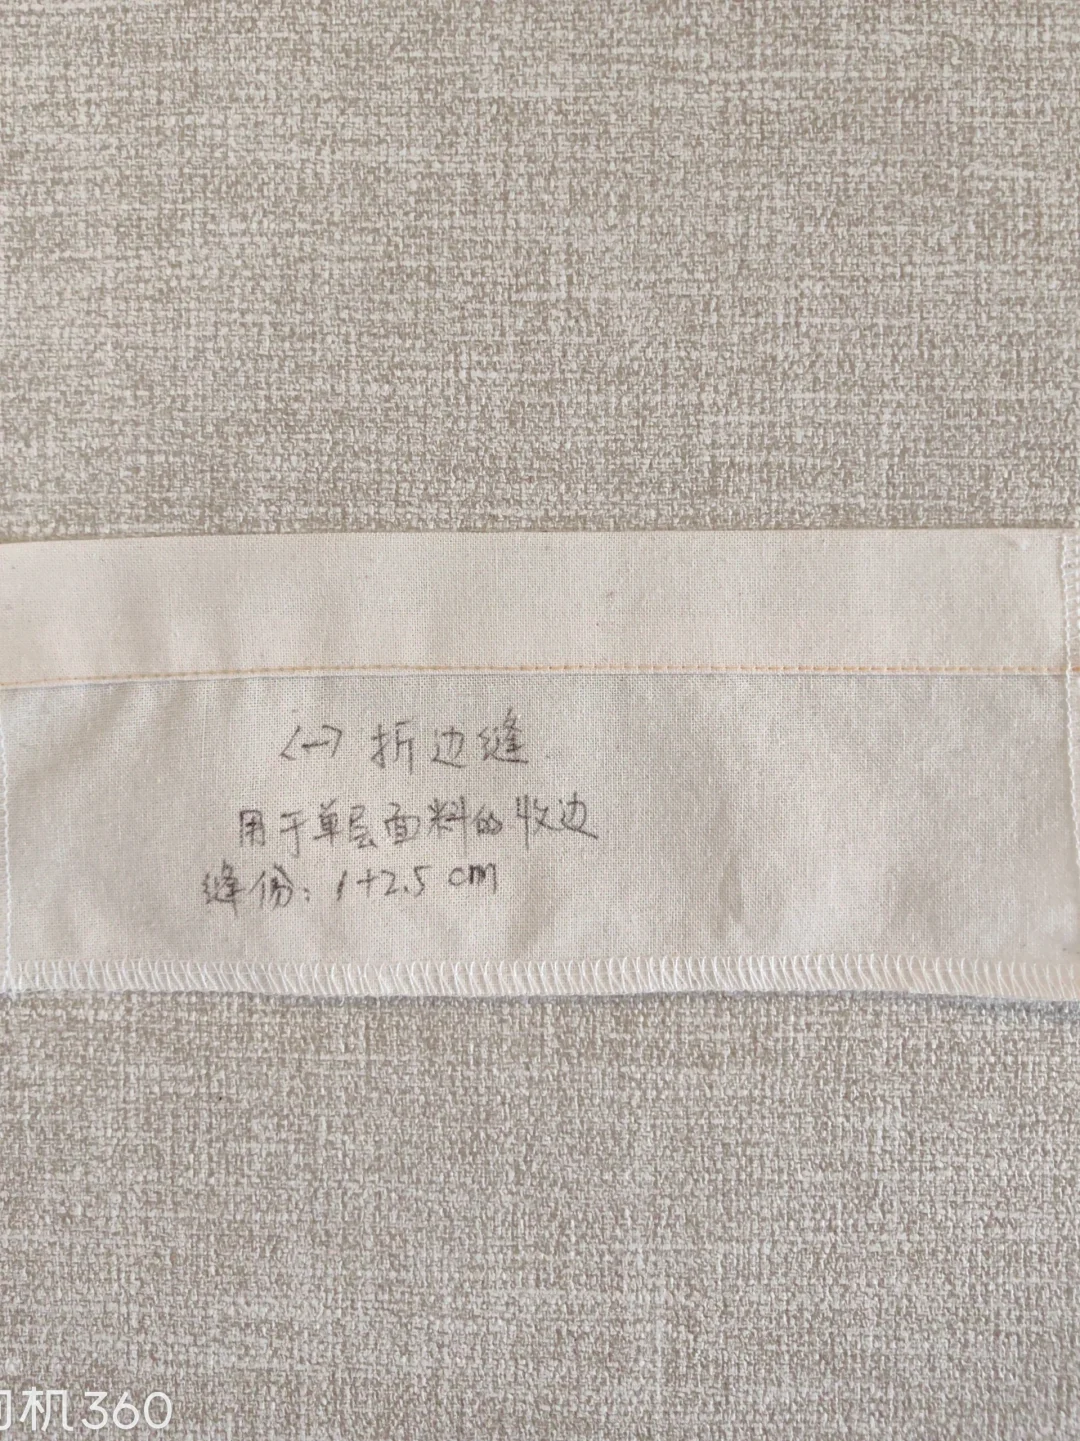 <一> 折边缝
用于单层面料的收边
缝份：1+2.5 cm
机360